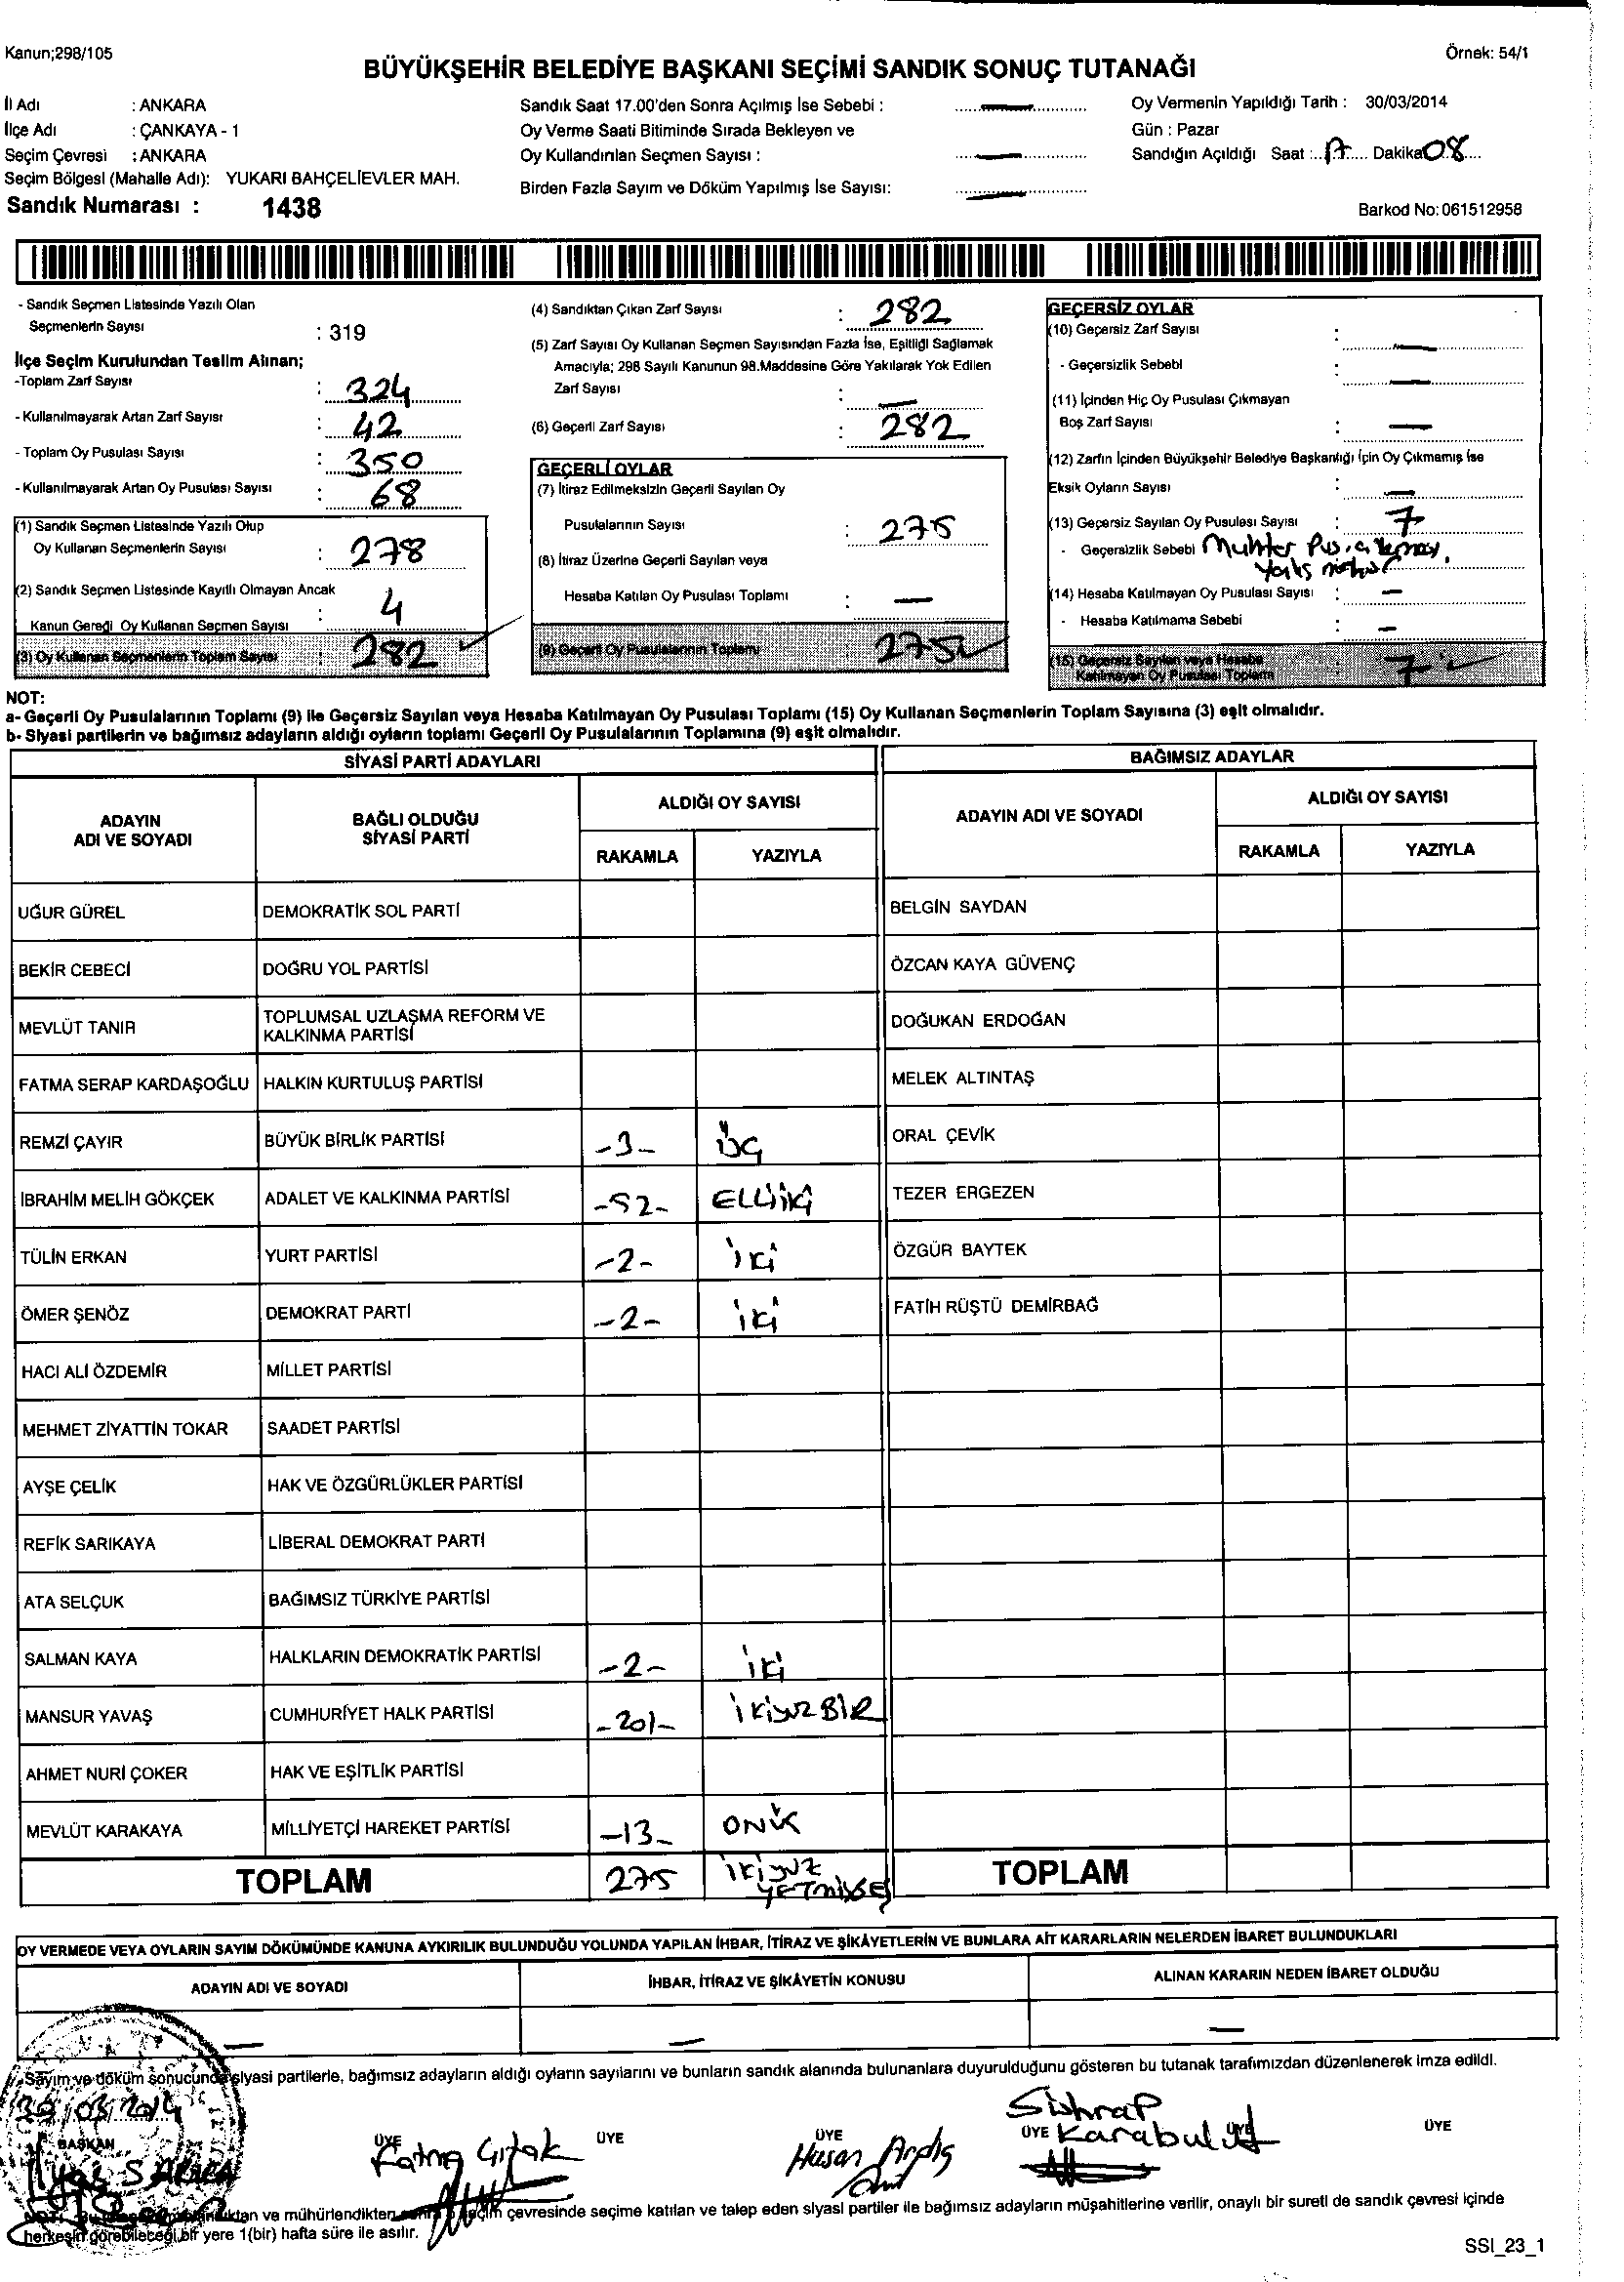 Kanun;298/105
Örnek: 54/1
BÜYÜKŞEHİR BELEDİYE BAŞKANI SEÇİMİ SANDIK SONUÇ TUTANAĞI
İl Adı : ANKARA
İlçe Adı : ÇANKAYA - 1
Seçim Çevresi : ANKARA
Seçim Bölgesi (Mahalle Adı): YUKARI BAHÇELİEVLER MAH.
Sandık Numarası : 1438
Sandık Saat 17.00'den Sonra Açılmış İse Sebebi : —
Oy Verme Saati Bitiminde Sırada Bekleyen ve
Oy Kullandırılan Seçmen Sayısı : —
Birden Fazla Sayım ve Döküm Yapılmış İse Sayısı: —
Oy Vermenin Yapıldığı Tarih : 30/03/2014
Gün : Pazar
Sandığın Açıldığı Saat : 17 Dakika 08
Barkod No: 061512958
- Sandık Seçmen Listesinde Yazılı Olan
Seçmenlerin Sayısı : 319
İlçe Seçim Kurulundan Teslim Alınan;
-Toplam Zarf Sayısı : 324
- Kullanılmayarak Artan Zarf Sayısı : 42
- Toplam Oy Pusulası Sayısı : 350
- Kullanılmayarak Artan Oy Pusulası Sayısı : 68
(1) Sandık Seçmen Listesinde Yazılı Olup
Oy Kullanan Seçmenlerin Sayısı : 278
(2) Sandık Seçmen Listesinde Kayıtlı Olmayan Ancak
Kanun Gereği Oy Kullanan Seçmen Sayısı : 4
(3) Oy Kullanan Seçmenlerin Toplam Sayısı : 282
(4) Sandıktan Çıkan Zarf Sayısı : 282
(5) Zarf Sayısı Oy Kullanan Seçmen Sayısından Fazla İse, Eşitliği Sağlamak
Amacıyla; 298 Sayılı Kanunun 98.Maddesine Göre Yakılarak Yok Edilen
Zarf Sayısı : —
(6) Geçerli Zarf Sayısı : 282
GEÇERLİ OYLAR
(7) İtiraz Edilmeksizin Geçerli Sayılan Oy
Pusulalarının Sayısı : 275
(8) İtiraz Üzerine Geçerli Sayılan veya
Hesaba Katılan Oy Pusulası Toplamı : —
(9) Geçerli Oy Pusulalarının Toplamı 275
GEÇERSİZ OYLAR
(10) Geçersiz Zarf Sayısı : —
- Geçersizlik Sebebi : —
(11) İçinden Hiç Oy Pusulası Çıkmayan
Boş Zarf Sayısı : —
(12) Zarfın İçinden Büyükşehir Belediye Başkanlığı İçin Oy Çıkmamış İse
Eksik Oyların Sayısı : —
(13) Geçersiz Sayılan Oy Pusulası Sayısı : 7
- Geçersizlik Sebebi Muhtar Pus.
(14) Hesaba Katılmayan Oy Pusulası Sayısı : —
- Hesaba Katılmama Sebebi : —
(15) Geçersiz Sayılan veya Hesaba
Katılmayan Oy Pusulası Toplamı : 7
NOT:
a- Geçerli Oy Pusulalarının Toplamı (9) ile Geçersiz Sayılan veya Hesaba Katılmayan Oy Pusulası Toplamı (15) Oy Kullanan Seçmenlerin Toplam Sayısına (3) eşit olmalıdır.
b- Siyasi partilerin ve bağımsız adayların aldığı oyların toplamı Geçerli Oy Pusulalarının Toplamına (9) eşit olmalıdır.
SİYASİ PARTİ ADAYLARI
BAĞIMSIZ ADAYLAR
ADAYIN ADI VE SOYADI
BAĞLI OLDUĞU SİYASİ PARTİ
ALDIĞI OY SAYISI
RAKAMLA YAZIYLA
ADAYIN ADI VE SOYADI
ALDIĞI OY SAYISI
RAKAMLA YAZIYLA
UĞUR GÜREL DEMOKRATİK SOL PARTİ BELGİN SAYDAN
BEKİR CEBECİ DOĞRU YOL PARTİSİ ÖZCAN KAYA GÜVENÇ
MEVLÜT TANIR TOPLUMSAL UZLAŞMA REFORM VE KALKINMA PARTİSİ DOĞUKAN ERDOĞAN
FATMA SERAP KARDAŞOĞLU HALKIN KURTULUŞ PARTİSİ MELEK ALTINTAŞ
REMZİ ÇAYIR BÜYÜK BİRLİK PARTİSİ -3- ÜÇ ORAL ÇEVİK
İBRAHİM MELİH GÖKÇEK ADALET VE KALKINMA PARTİSİ -52- ELLİİKİ TEZER ERGEZEN
TÜLİN ERKAN YURT PARTİSİ -2- İKİ ÖZGÜR BAYTEK
ÖMER ŞENÖZ DEMOKRAT PARTİ -2- İKİ FATİH RÜŞTÜ DEMİRBAĞ
HACI ALİ ÖZDEMİR MİLLET PARTİSİ
MEHMET ZİYATTİN TOKAR SAADET PARTİSİ
AYŞE ÇELİK HAK VE ÖZGÜRLÜKLER PARTİSİ
REFİK SARIKAYA LİBERAL DEMOKRAT PARTİ
ATA SELÇUK BAĞIMSIZ TÜRKİYE PARTİSİ
SALMAN KAYA HALKLARIN DEMOKRATİK PARTİSİ -2- İKİ
MANSUR YAVAŞ CUMHURİYET HALK PARTİSİ -201- İKİYÜZBİR
AHMET NURİ ÇOKER HAK VE EŞİTLİK PARTİSİ
MEVLÜT KARAKAYA MİLLİYETÇİ HAREKET PARTİSİ -13- ONÜÇ
TOPLAM 275 İKİYÜZ YETMİŞBEŞ TOPLAM
OY VERMEDE VEYA OYLARIN SAYIM DÖKÜMÜNDE KANUNA AYKIRILIK BULUNDUĞU YOLUNDA YAPILAN İHBAR, İTİRAZ VE ŞİKÂYETLERİN VE BUNLARA AİT KARARLARIN NELERDEN İBARET BULUNDUKLARI
ADAYIN ADI VE SOYADI İHBAR, İTİRAZ VE ŞİKÂYETİN KONUSU ALINAN KARARIN NEDEN İBARET OLDUĞU
— — —
Sayım ve döküm sonucunda siyasi partilerle, bağımsız adayların aldığı oyların sayılarını ve bunların sandık alanında bulunanlara duyurulduğunu gösteren bu tutanak tarafımızdan düzenlenerek imza edildi.
30/03/2014
BAŞKAN ÜYE ÜYE ÜYE ÜYE ÜYE ÜYE
Fatma Çıtak
Hasan
Karabulut
NOT: ve mühürlendikten sonra seçim çevresinde seçime katılan ve talep eden siyasi partiler ile bağımsız adayların müşahitlerine verilir, onaylı bir sureti de sandık çevresi içinde
herkesin görebileceği bir yere 1(bir) hafta süre ile asılır.
SSI_23_1